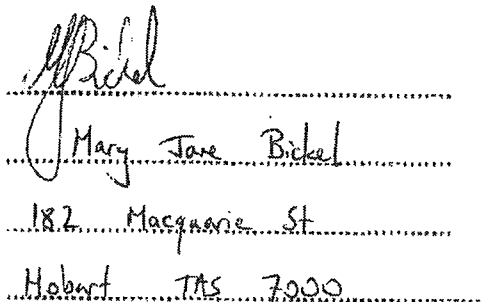 MJBickel
Mary Jane Bickel
182 Macquarie St
Hobart TAS 7000